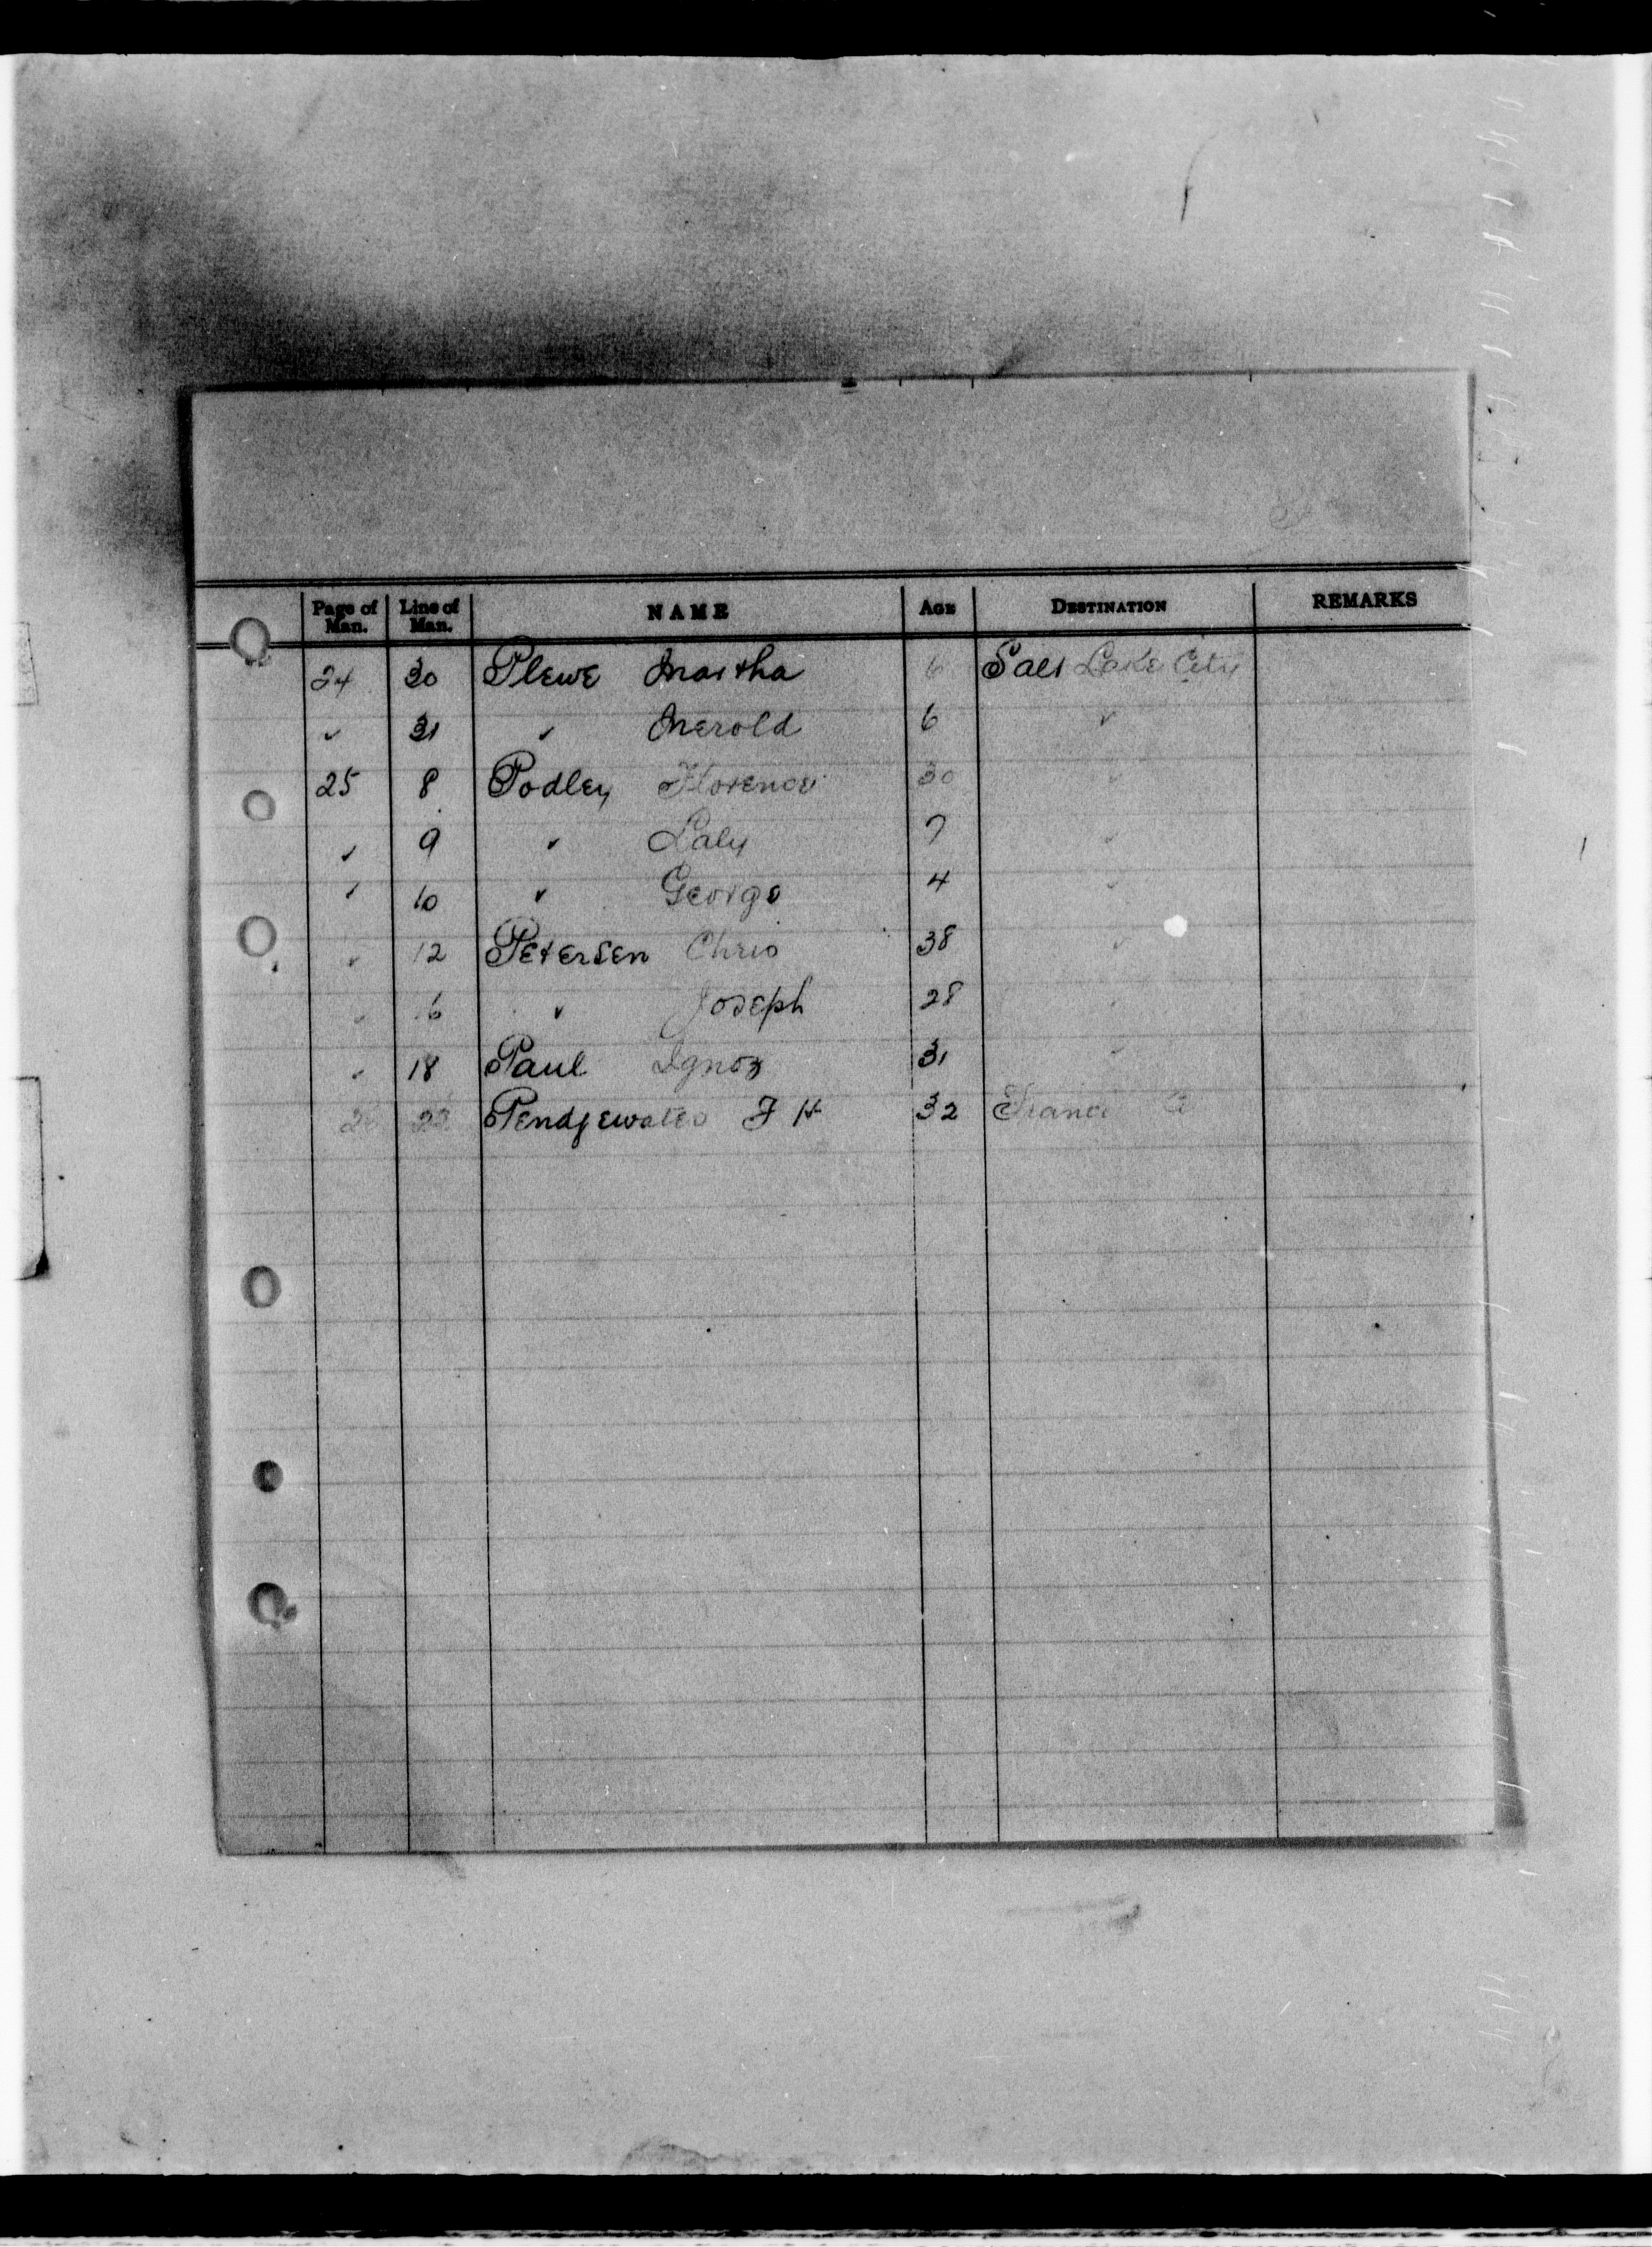 Page of Man. Line of Man. NAME AGE DESTINATION REMARKS
24 30 Plewe Martha 6 Salt Lake City
✓ 31 ✓ Merold 6 ✓
25 8 Podley Florence 30 ✓
✓ 9 ✓ Laly 7 ✓
✓ 10 ✓ George 4 ✓
✓ 12 Petersen Chris 38 ✓
✓ 16 ✓ Joseph 28 ✓
✓ 18 Paul Ignoz 31 ✓
F H 32